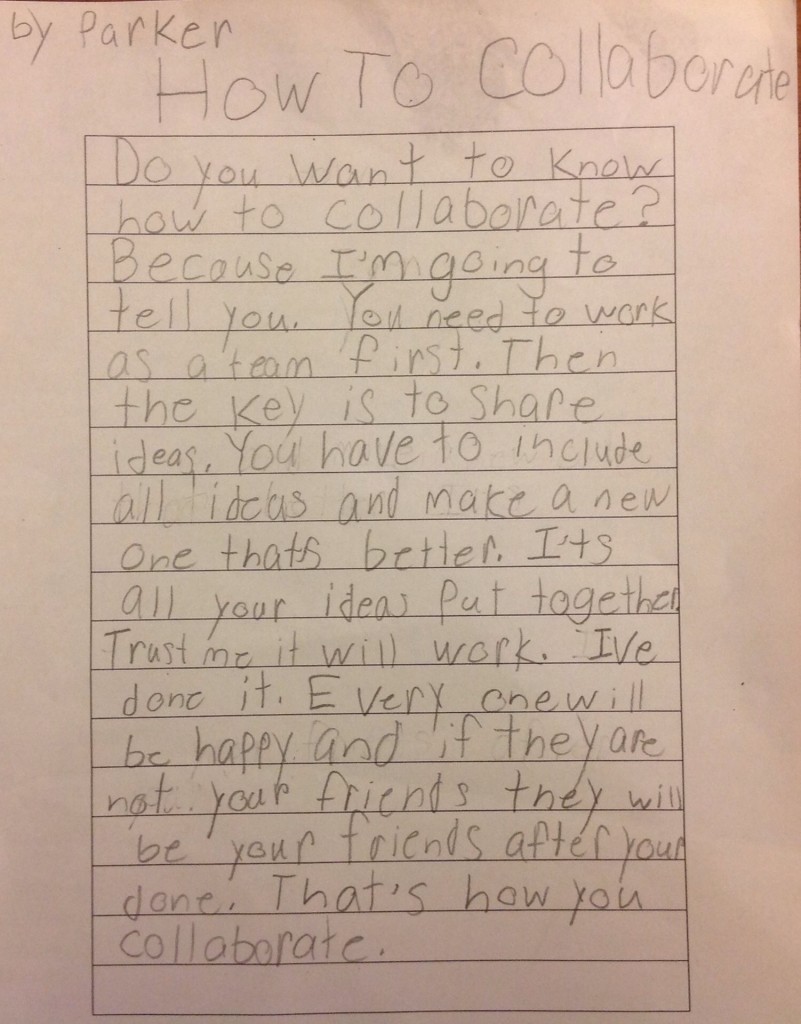 by Parker
How To Collaborate
Do you want to know
how to collaborate?
Because I'm going to
tell you. You need to work
as a team first. Then
the key is to share
ideas. You have to include
all ideas and make a new
one thats better. I'ts
all your ideas put together.
Trust me it will work. I've
done it. Every one will
be happy and if they are
not your friends they will
be your friends after your
done. That's how you
collaborate.